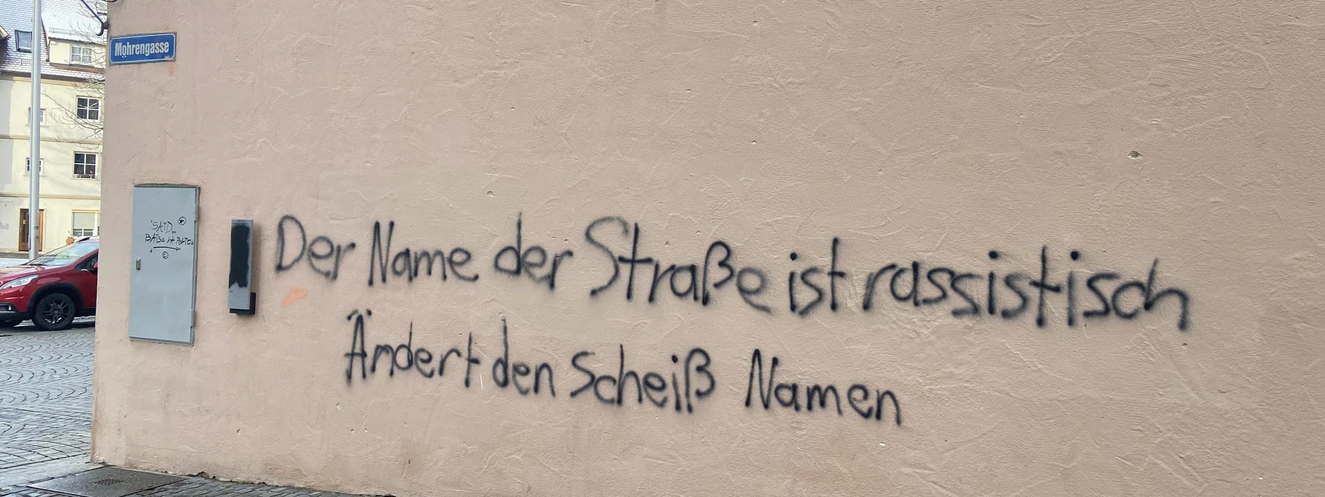 Mohrengasse
Der Name der Straße ist rassistisch
Ändert den Scheiß Namen